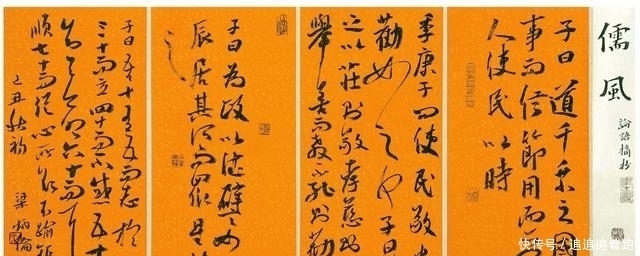 儒風
論語摘抄
子曰道千乘之國
事而信節用而愛
人使民以時
季康子问使民敬忠
勸如之何子曰
之以莊則敬孝慈則
舉善而教不能則勸
子曰為政以德譬如
辰居其所而眾星共
之
子曰吾十有五而志於
三十而立四十而不惑五十
知天命六十而耳
順七十而從心所欲不踰矩
乙丑秋初
梁炳
快传号／追追追着跑